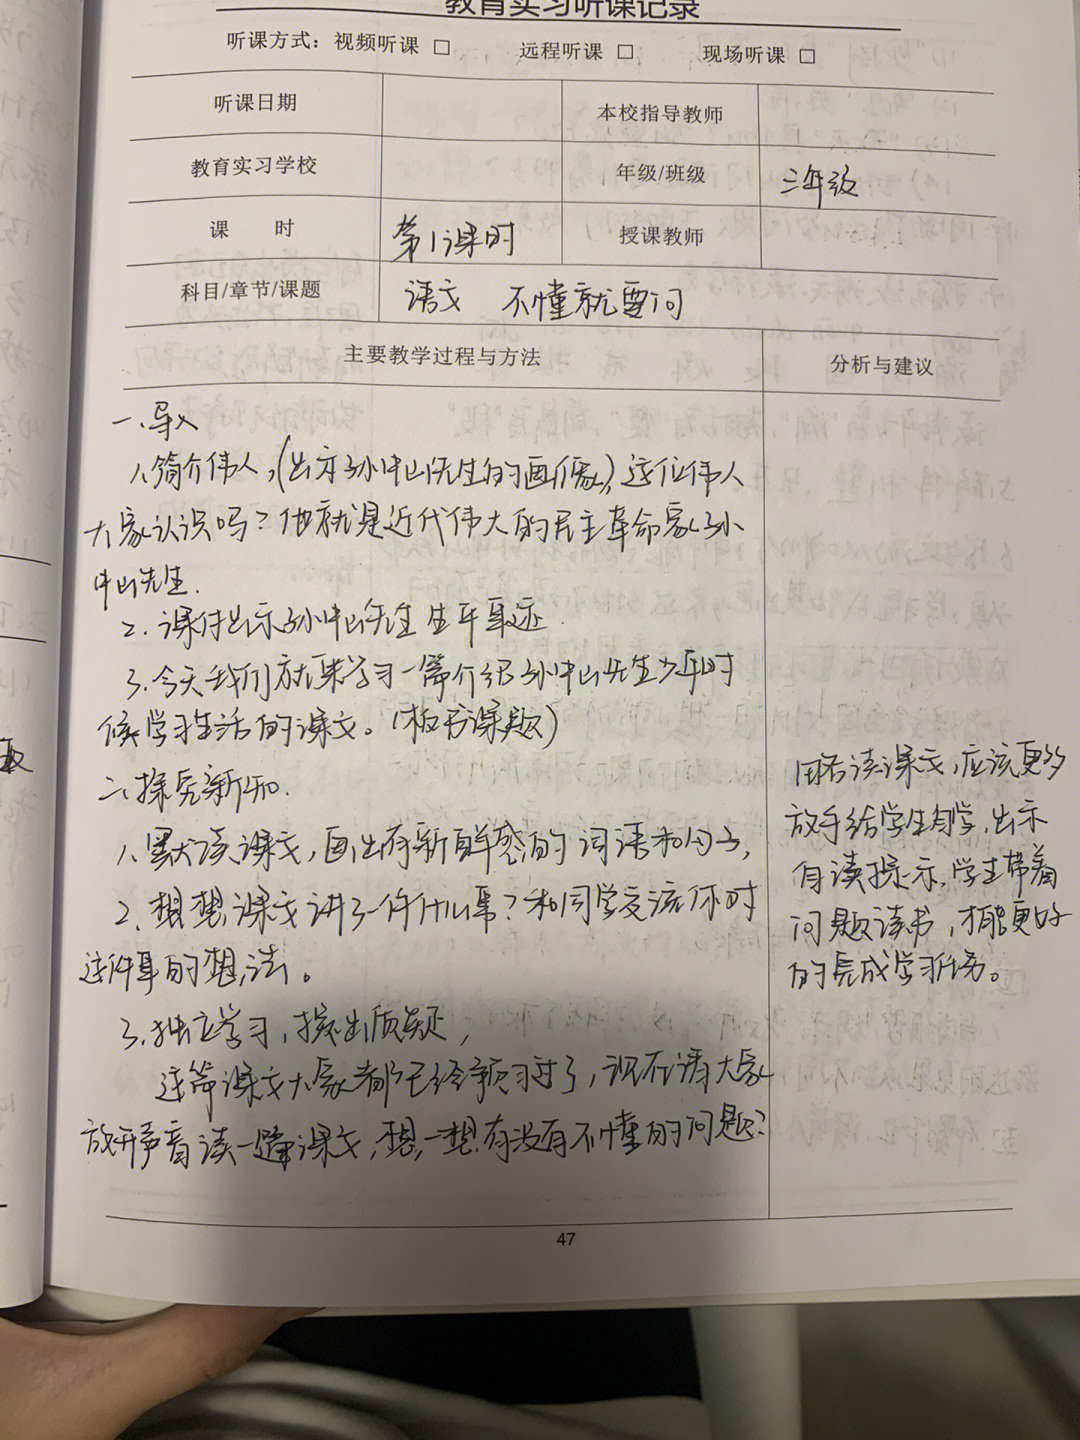 教育实习听课记录
听课方式：视频听课 □ 远程听课 □ 现场听课 □
听课日期 本校指导教师
教育实习学校 年级/班级 三年级
课 时 第1课时 授课教师
科目/章节/课题 语文 不懂就要问
主要教学过程与方法 分析与建议
一、导入
1、简介伟人，(出示孙中山先生的画像)，这位伟人
大家认识吗？他就是近代伟大的民主革命家孙
中山先生.
2、课件出示孙中山先生生平事迹.
3、今天我们就来学习一篇介绍孙中山先生少年时
候学习生活的课文。(板书课题)
二、探究新知.
1、默读课文，画出有新鲜感的词语和句子，
2、想想，课文讲了一件什么事？和同学交流你对
这件事的想法。
3、独立学习，提出质疑，
这篇课文大家都已经预习过了，现在请大家
放开声音读一遍课文，想一想有没有不懂的问题?
读课文，应该更多
放手给学生自学，出示
自读提示，学生带着
问题读书，才能更好
的完成学习任务。
47